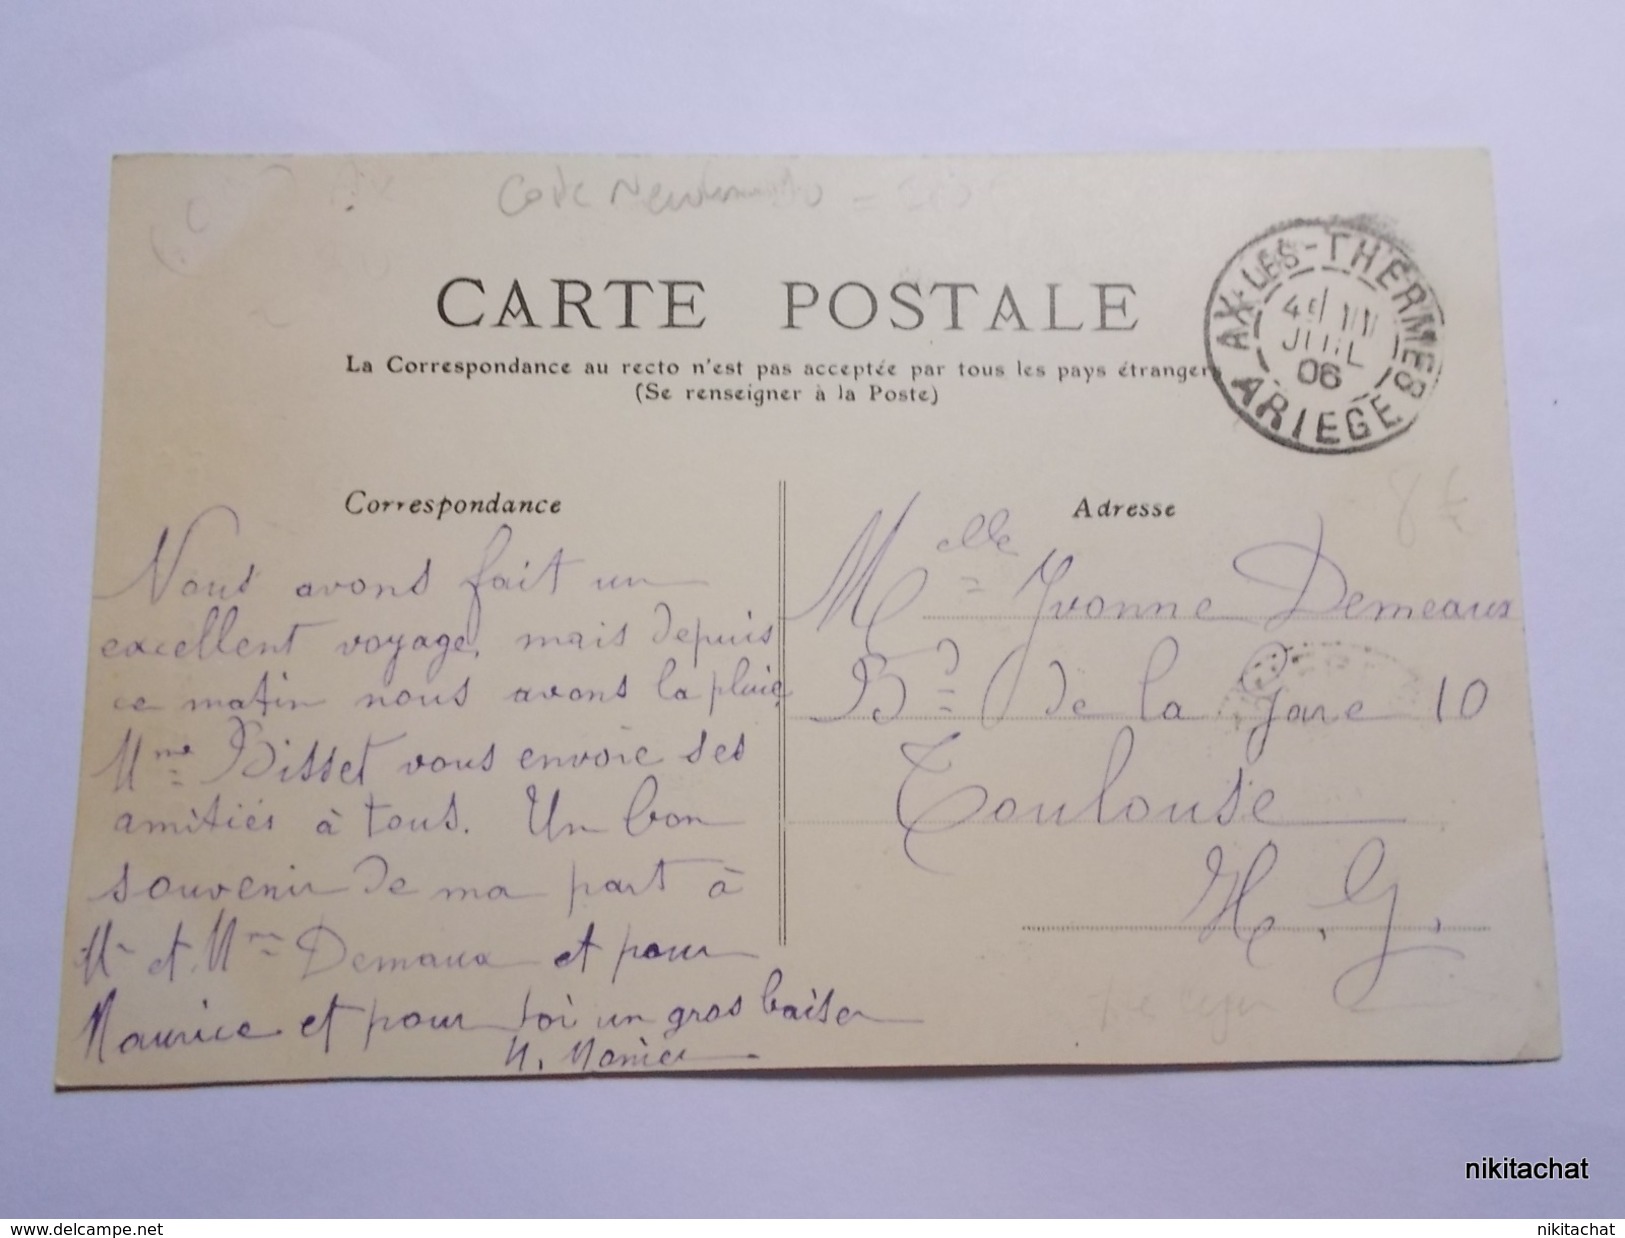 CARTE POSTALE
La Correspondance au recto n'est pas acceptée par tous les pays étrangers
(Se renseigner à la Poste)
AX-LES-THERMES
JUIL
06
ARIEGE
Correspondance
Nous avons fait un
excellent voyage, mais depuis
ce matin nous avons la pluie,
Mme Bisset vous envoie ses
amitiés à tous. Un bon
souvenir de ma part à
Mr et Mme Demaux et pour
Maurice et pour toi un gros baiser
Adresse
Melle Yvonne Demeaux
Bd de la Gare 10
Toulouse
H. G.
nikitachat
www.delcampe.net
nikitachat